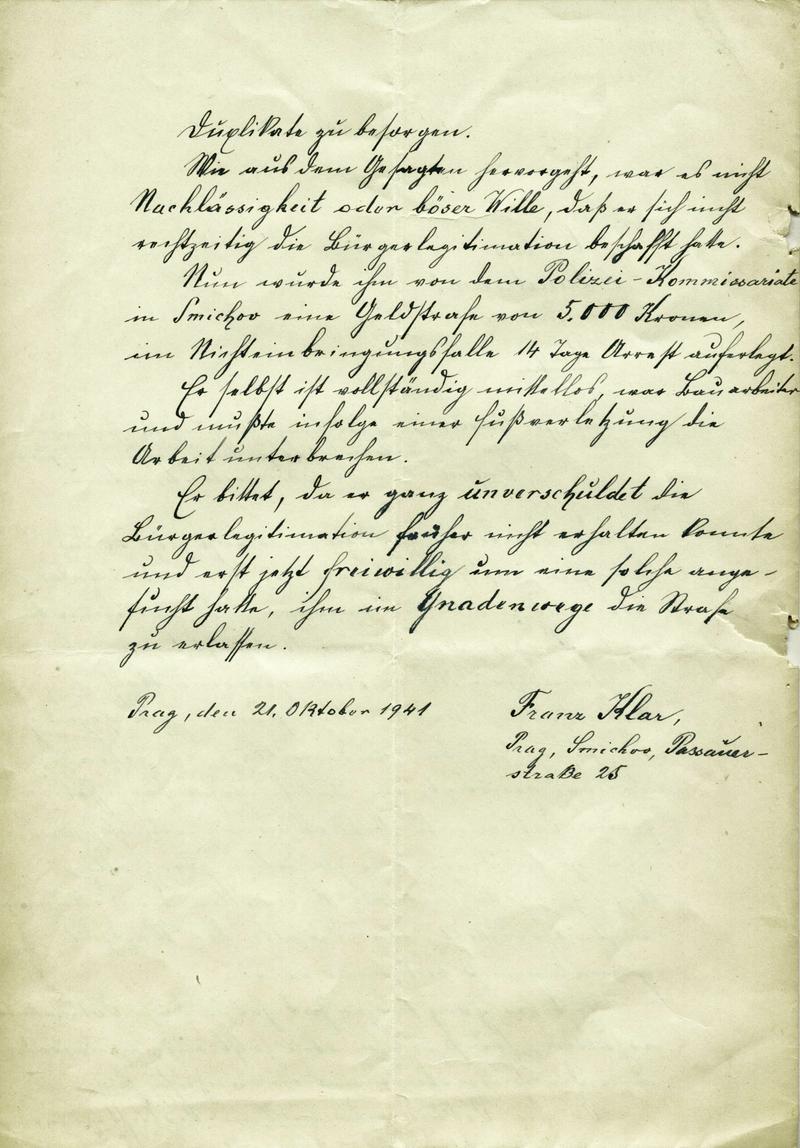 Duplikate zu besorgen.
Wie aus dem Gesagten hervorgeht, war es nicht
Nachlässigkeit oder böser Wille, daß er sich nicht
rechtzeitig die Bürgerlegitimation beschafft hatte.
Nun wurde ihm von dem Polizei-Kommissariate
in Smichov eine Geldstrafe von 5.000 Kronen,
im Nichteinbringungsfalle 14 Tage Arrest auferlegt.
Er selbst ist vollständig mittellos, war Bauarbeiter
und mußte infolge einer Fußverletzung die
Arbeit unterbrechen.
Er bittet, da er ganz unverschuldet die
Bürgerlegitimation früher nicht erhalten konnte
und erst jetzt freiwillig um eine solche ange-
sucht hatte, ihm im Gnadenwege die Strafe
zu erlassen.
Prag, den 21. Oktober 1941
Franz Klar,
Prag, Smichov, Passauer-
straße 25